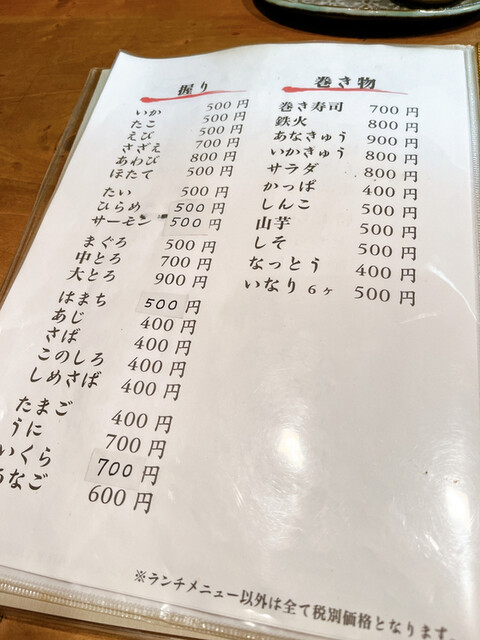 握り
いか 500円
たこ 500円
えび 500円
さざえ 700円
あわび 800円
ほたて 500円
たい 500円
ひらめ 500円
サーモン 500円
まぐろ 500円
中とろ 700円
大とろ 900円
はまち 500円
あじ 400円
さば 400円
このしろ 400円
しめさば 400円
たまご 400円
うに 700円
いくら 700円
なご 600円
巻き物
巻き寿司 700円
鉄火 800円
あなきゅう 900円
いかきゅう 800円
サラダ 800円
かっぱ 400円
しんこ 500円
山芋 500円
しそ 500円
なっとう 400円
いなり6ヶ 500円
※ランチメニュー以外は全て税別価格となります。